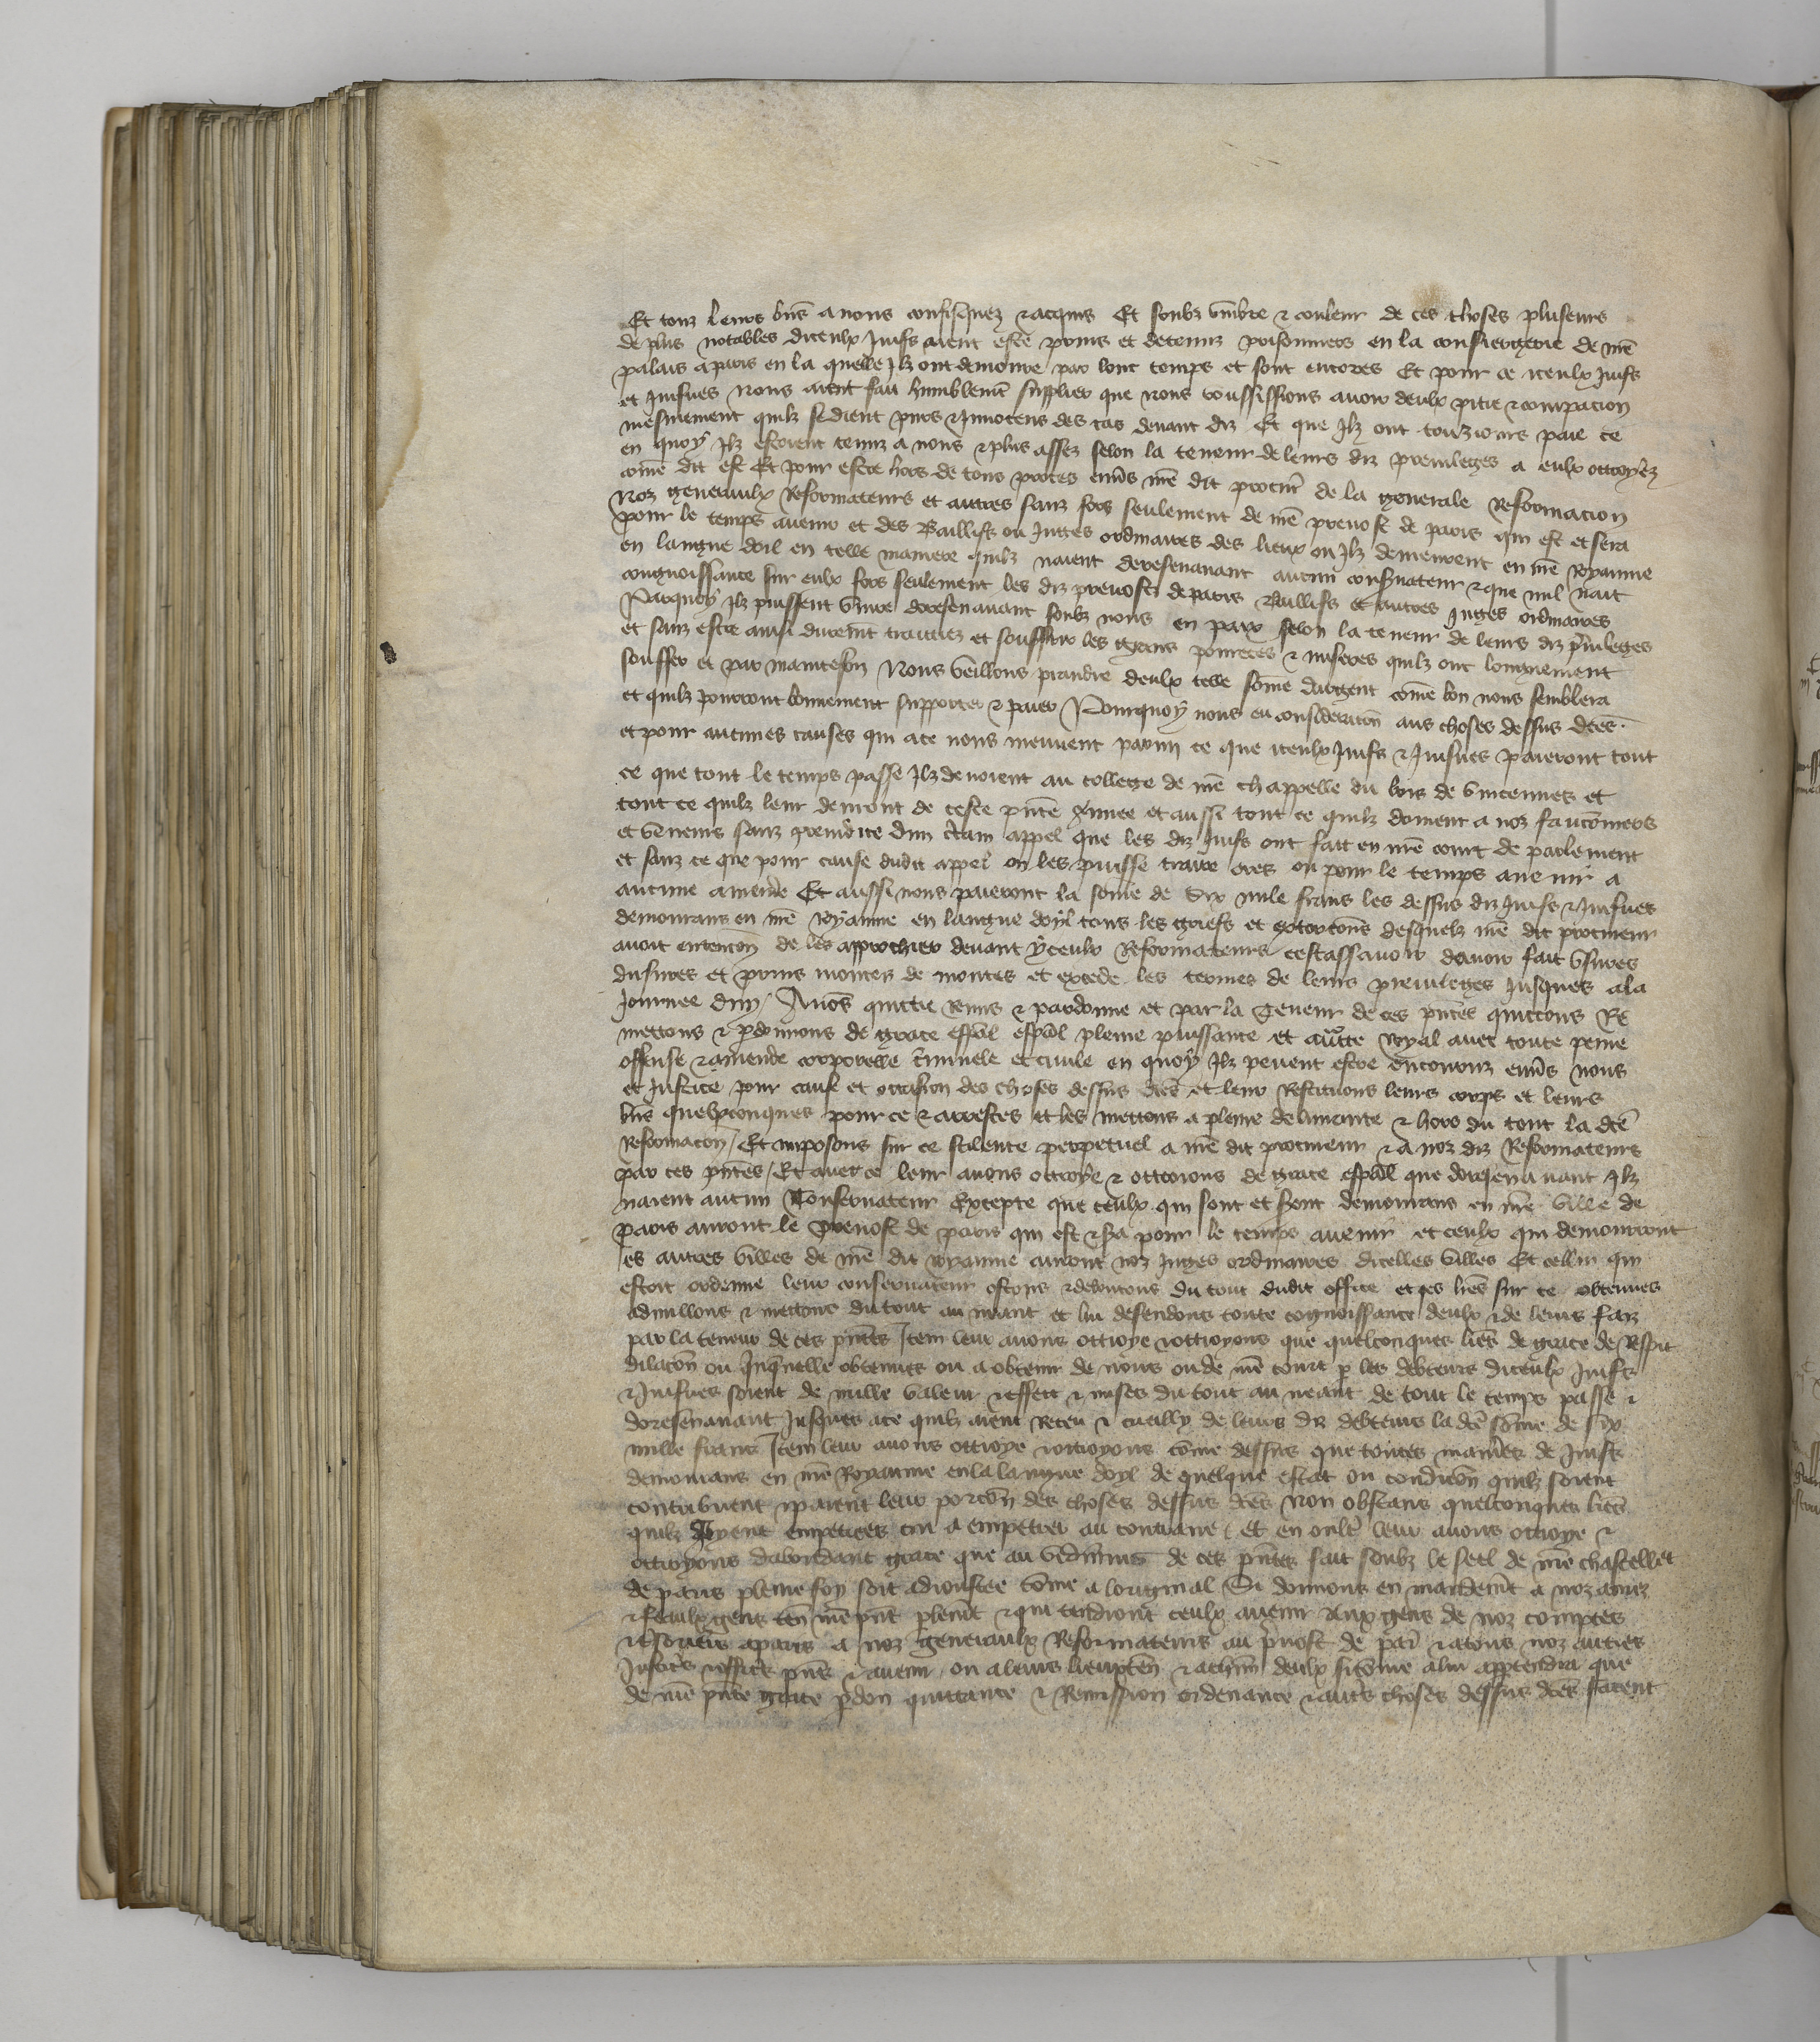 Et touz leurs bñs a nous confisquez & acquis Et soubz vmbre & couleur de ces choses pluseurs
de plus notables diceulx Juifs aient este prins et detenuz prisonniers en la consiergerie de nr̃e
palais a paris en la quelle Ilz ont demoure par lonc temps et sont encores Et pour ce iceulx Juifs
et Juifues nous aient fait humblemẽt supplier que nous voulsissions auoir deulx pitie & compacion
mesmement quilz se dient purs & Innocens des cas deuant diz Et que Ilz ont touziours paie ce
en quoy Ilz estoient tenuz a nous & plus assez selon la teneur de leurs diz preuileges a eulx ottroyez
cõme dit est Et pour estre hors de tous proces enuẽs nr̃e dit procur̃ de la generale Reformacion
Noz generaulx Reformateurs et autres sanz fors seulement de nr̃e preuost de paris qui est et sera
pour le temps auenir et des Baillifs ou Juges ordinaires des lieux ou Ilz demeurent en nr̃e royaume
en langue doil en telle maniere quilz naient doresenauant aucun conseruateur & que nul nait
congnoissance sur eulx fors seulement les diz preuost de paris Baillifs et autres Juges ordinaires
Parquoy Ilz puissent viure doresenauant soubz nous en paix selon la teneur de leurs diz p̃uileges
et sanz estre ainsi duremẽt traittiez et souffrir les grans pouretes & miseres quilz ont longuement
souffer et par maintesfoiz Nous veillons prandre deulx telle sõme dargent cõme bon nous semblera
et quilz pourront bonnement supporter & paier Pourquoy nous eu consideracõn aus choses dessus dc̃es
et pour aucunes causes qui a ce nous meuuent parmi ce que iceulx Juifs & Juifues paieront tout
ce que tout le temps passe Ilz deuoient au college de nr̃e chappelle du bois de vincennes et
tout ce quilz leur deuront de ceste pñte annee et aussi tout ce quilz doiuent a noz fauconniers
et veneurs sanz preiudice dun c̃tain appel que les diz Juifs ont fait en nr̃e court de parlement
et sanz ce que pour cause dudit appel on les puisse traire ores ou pour le temps auenir a
aucune amende Et aussi nous paieront la sõme de six mile frans les dessus diz Juifs & Juifues
demourans en nr̃e royaume en langue doyl tous les griefs et extorcõns desquelz nr̃e dit procureur
auoit entencõn de les approchier deuant yceulx Reformateurs cestassauoir dauoir fait vsures
dusures et prins montes de montes et excede les termes de leurs preuileges Jusques a la
Journee duy Auõs quittie Remis & pardonne et par la Teneur de ces pñtes quittons Re
mettons & p̃donnons de grace esp̃al esp̃al pleine puissance et autt̃e royal auec toute peine
offense & amende corporelle c̃iminele et ciuile en quoy Ilz peuent estre encouruz enuẽs nous
et Justice pour cause et occasion des choses dessus dc̃es et leur Restituons leurs corps et leurs
bñs quelxconques pour ce & arrestes et les mettons a pleine deliurance & hors du tout la dc̃e
Reformacõn Et imposons sur ce scilence perpetuel a nr̃e dit procureur & a noz diz Reformateurs
par ces pñtes Et auec ce leur auons ottroye & ottroions de grace esp̃al que dorsenauant Ilz
naient aucun Conseruateur Excepte que ceulx qui sont et s̃ont demourans en nr̃e ville de
paris auront le preuost de paris qui est & s̃a pour le temps auenir et ceulx qui demourront
es autres villes de nr̃e dit royaume auront noz Juges ordinaires dicelles villes Et cellui qui
estoit ordenne leur conseruateur ostons & deboutons du tout dudit office et ses lr̃es sur ce obtenues
adnullons & mettons du tout au neant et lui deffendons toute cognoissance deulx & de leurs faiz
par la teneur de ces pñtes Item leur auons ottroye & ottroyons que quelconques lr̃es de grace de Respit
dilacõn ou Jnq̃nelle obtenues ou a obtenir de nous ou de nr̃e court p̃ les debteurs diceulx Juifs
& Juifues soient de nulle valeur & effect & mises du tout au neant de tout le temps passe &
doresenauant Jusques a ce quilz aient Receu & cueilly de leurs diz debteurs la dc̃e sõme de six
mille frans Item leur auons ottroye & ottroyons cõme dessus que toutes manier̃es de Juifs
demourans en nr̃e Royaume en la langue doyl de quelque estat ou condicõn quilz soient
contribuent & paient leur porcõn des choses dessus dc̃es Non obstans quelconques lr̃es
quilz Ayent empetrees ou a empetrer au contraire Et en oultr̃ leur auons ottroye &
ottroyons dabondant grace que au vidimus de ces pñtes fait soubz le seel de nr̃e chastellet
de paris pleine foy soit adioustee cõme a loriginal Si donnons en mandemt̃ a noz amez
& feaulx gens ten̄ nr̃e pñt parlemt̃ & qui tendront ceulx auenir Aux gens de noz comptes
& tresoriers a paris a noz generaulx Reformateurs au p̃uost de par̃ & a tous noz autres
Justic̃s & offic̃s pñs & auenir ou a leurs lieuxten̄ & a chũn deulx si cõme a lui appartendra que
de nr̃e pñte grace p̃don quittance & Remission ordenance & autr̃s choses dessus dc̃es facent